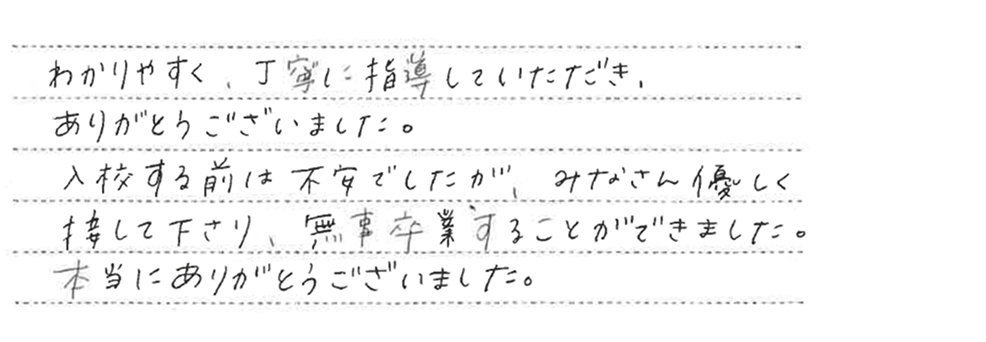 わかりやすく、丁寧に指導していただき、
ありがとうございました。
入校する前は不安でしたが、みなさん優しく
接して下さり、無事卒業することができました。
本当にありがとうございました。